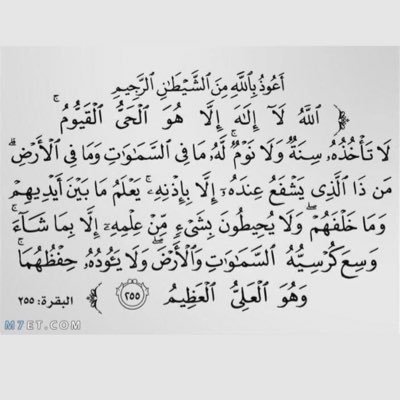 أَعُوذُ بِاللَّهِ مِنَ الشَّيْطَانِ الرَّجِيمِ
﴿ اللَّهُ لَآ إِلَٰهَ إِلَّا هُوَ الْحَيُّ الْقَيُّومُ ۚ
لَا تَأْخُذُهُۥ سِنَةٌ وَلَا نَوْمٌ ۚ لَّهُۥ مَا فِى السَّمَٰوَٰتِ وَمَا فِى الْأَرْضِ ۗ
مَن ذَا الَّذِى يَشْفَعُ عِندَهُۥٓ إِلَّا بِإِذْنِهِۦ ۚ يَعْلَمُ مَا بَيْنَ أَيْدِيهِمْ
وَمَا خَلْفَهُمْ ۖ وَلَا يُحِيطُونَ بِشَىْءٍ مِّنْ عِلْمِهِۦٓ إِلَّا بِمَا شَآءَ ۚ
وَسِعَ كُرْسِيُّهُ السَّمَٰوَٰتِ وَالْأَرْضَ ۖ وَلَا يَـُٔودُهُۥ حِفْظُهُمَا ۚ
وَهُوَ الْعَلِىُّ الْعَظِيمُ ٢٥٥ ﴾ البقرة: ٢٥٥
M7ET.COM